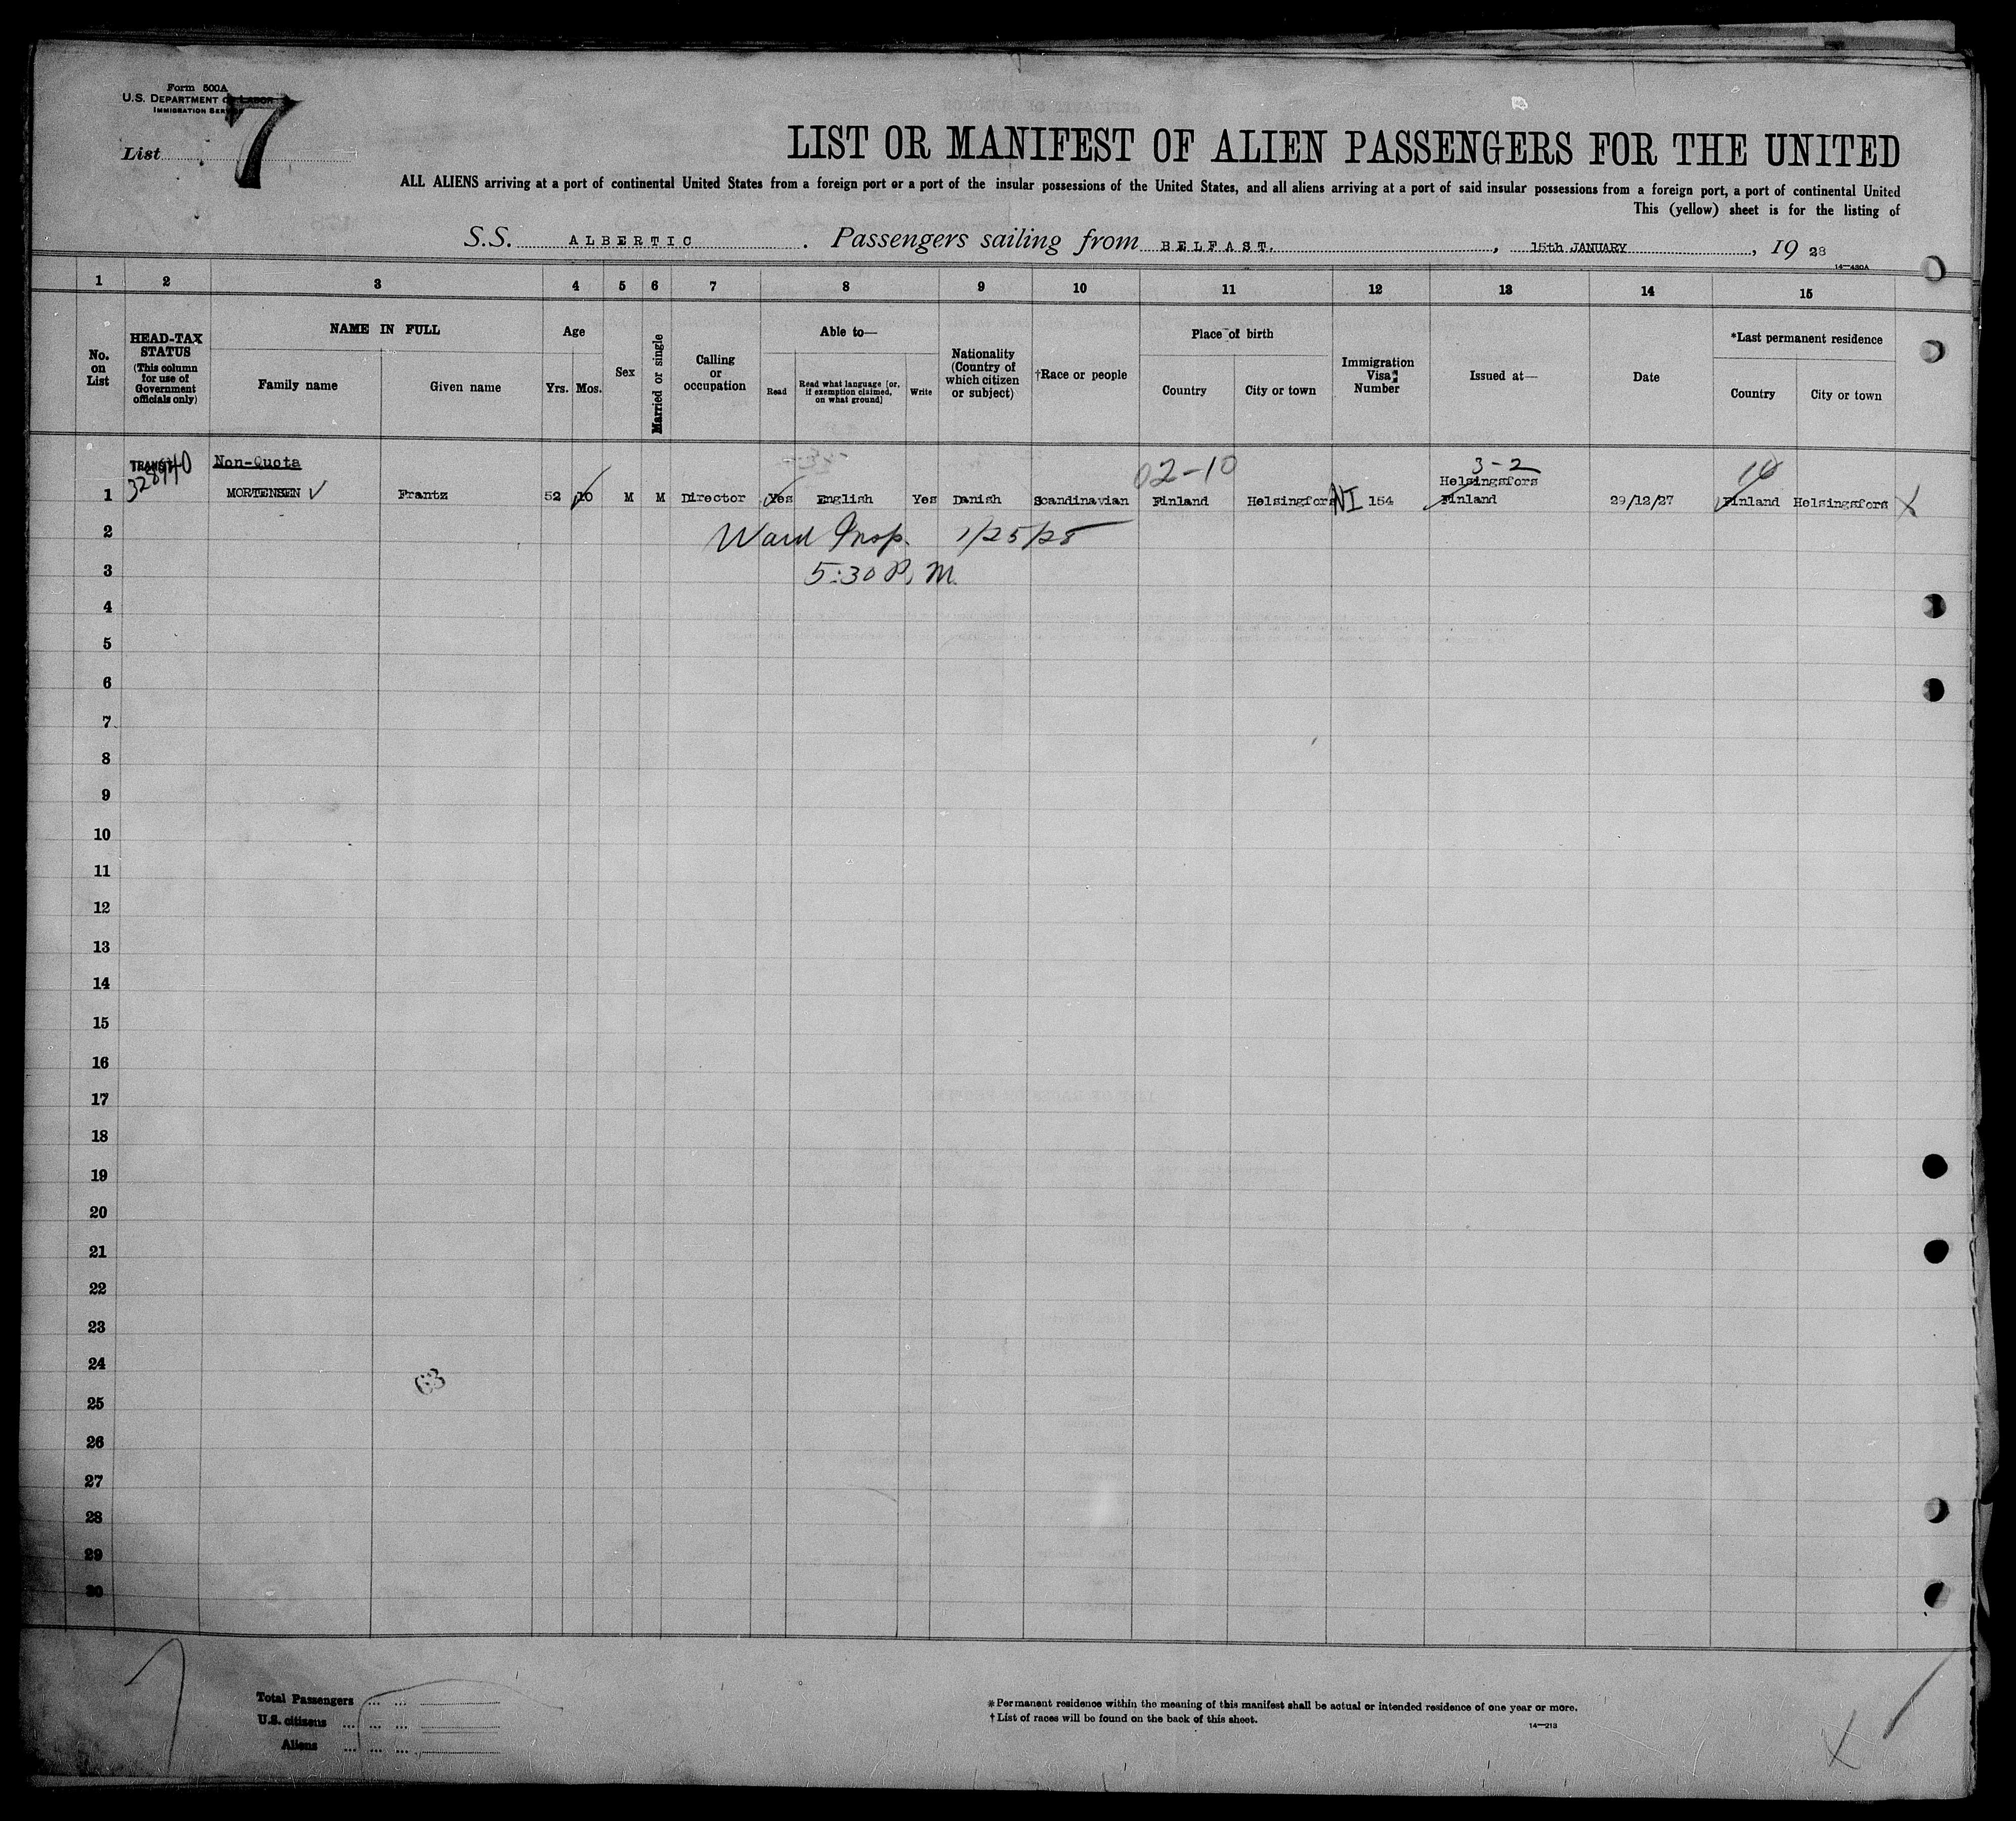 Form 500A
U.S. DEPARTMENT OF LABOR
IMMIGRATION SERVICE
List 7
LIST OR MANIFEST OF ALIEN PASSENGERS FOR THE UNITED
ALL ALIENS arriving at a port of continental United States from a foreign port or a port of the insular possessions of the United States, and all aliens arriving at a port of said insular possessions from a foreign port, a port of continental United
This (yellow) sheet is for the listing of
S.S. ALBERTIC. Passengers sailing from BELFAST., 15th JANUARY, 19 28
14—430A
1 2 3 4 5 6 7 8 9 10 11 12 13 14 15
No. on List
HEAD-TAX STATUS (This column for use of Government officials only)
NAME IN FULL
Family name
Given name
Age
Yrs. Mos.
Sex
Married or single
Calling or occupation
Able to—
Read
Read what language [or, if exemption claimed, on what ground]
Write
Nationality (Country of which citizen or subject)
†Race or people
Place of birth
Country
City or town
Immigration Visa Number
Issued at—
Date
*Last permanent residence
Country
City or town
TRANSIT Non-Quota 02-10 3-2 10
328940 Helsingsfors
1 MORTENSEN Frantz 52 10 M M Director Yes English Yes Danish Scandinavian Finland Helsingfors NI 154 Finland 29/12/27 Finland Helsingsfors X
2 Ward Insp. 1/25/28
3 5:30 P.M.
4
5
6
7
8
9
10
11
12
13
14
15
16
17
18
19
20
21
22
23
24
63
25
26
27
28
29
30
Total Passengers ... ...
U.S. citizens ... ... ...
Aliens ... ... ...
*Permanent residence within the meaning of this manifest shall be actual or intended residence of one year or more.
†List of races will be found on the back of this sheet.
14—213
X